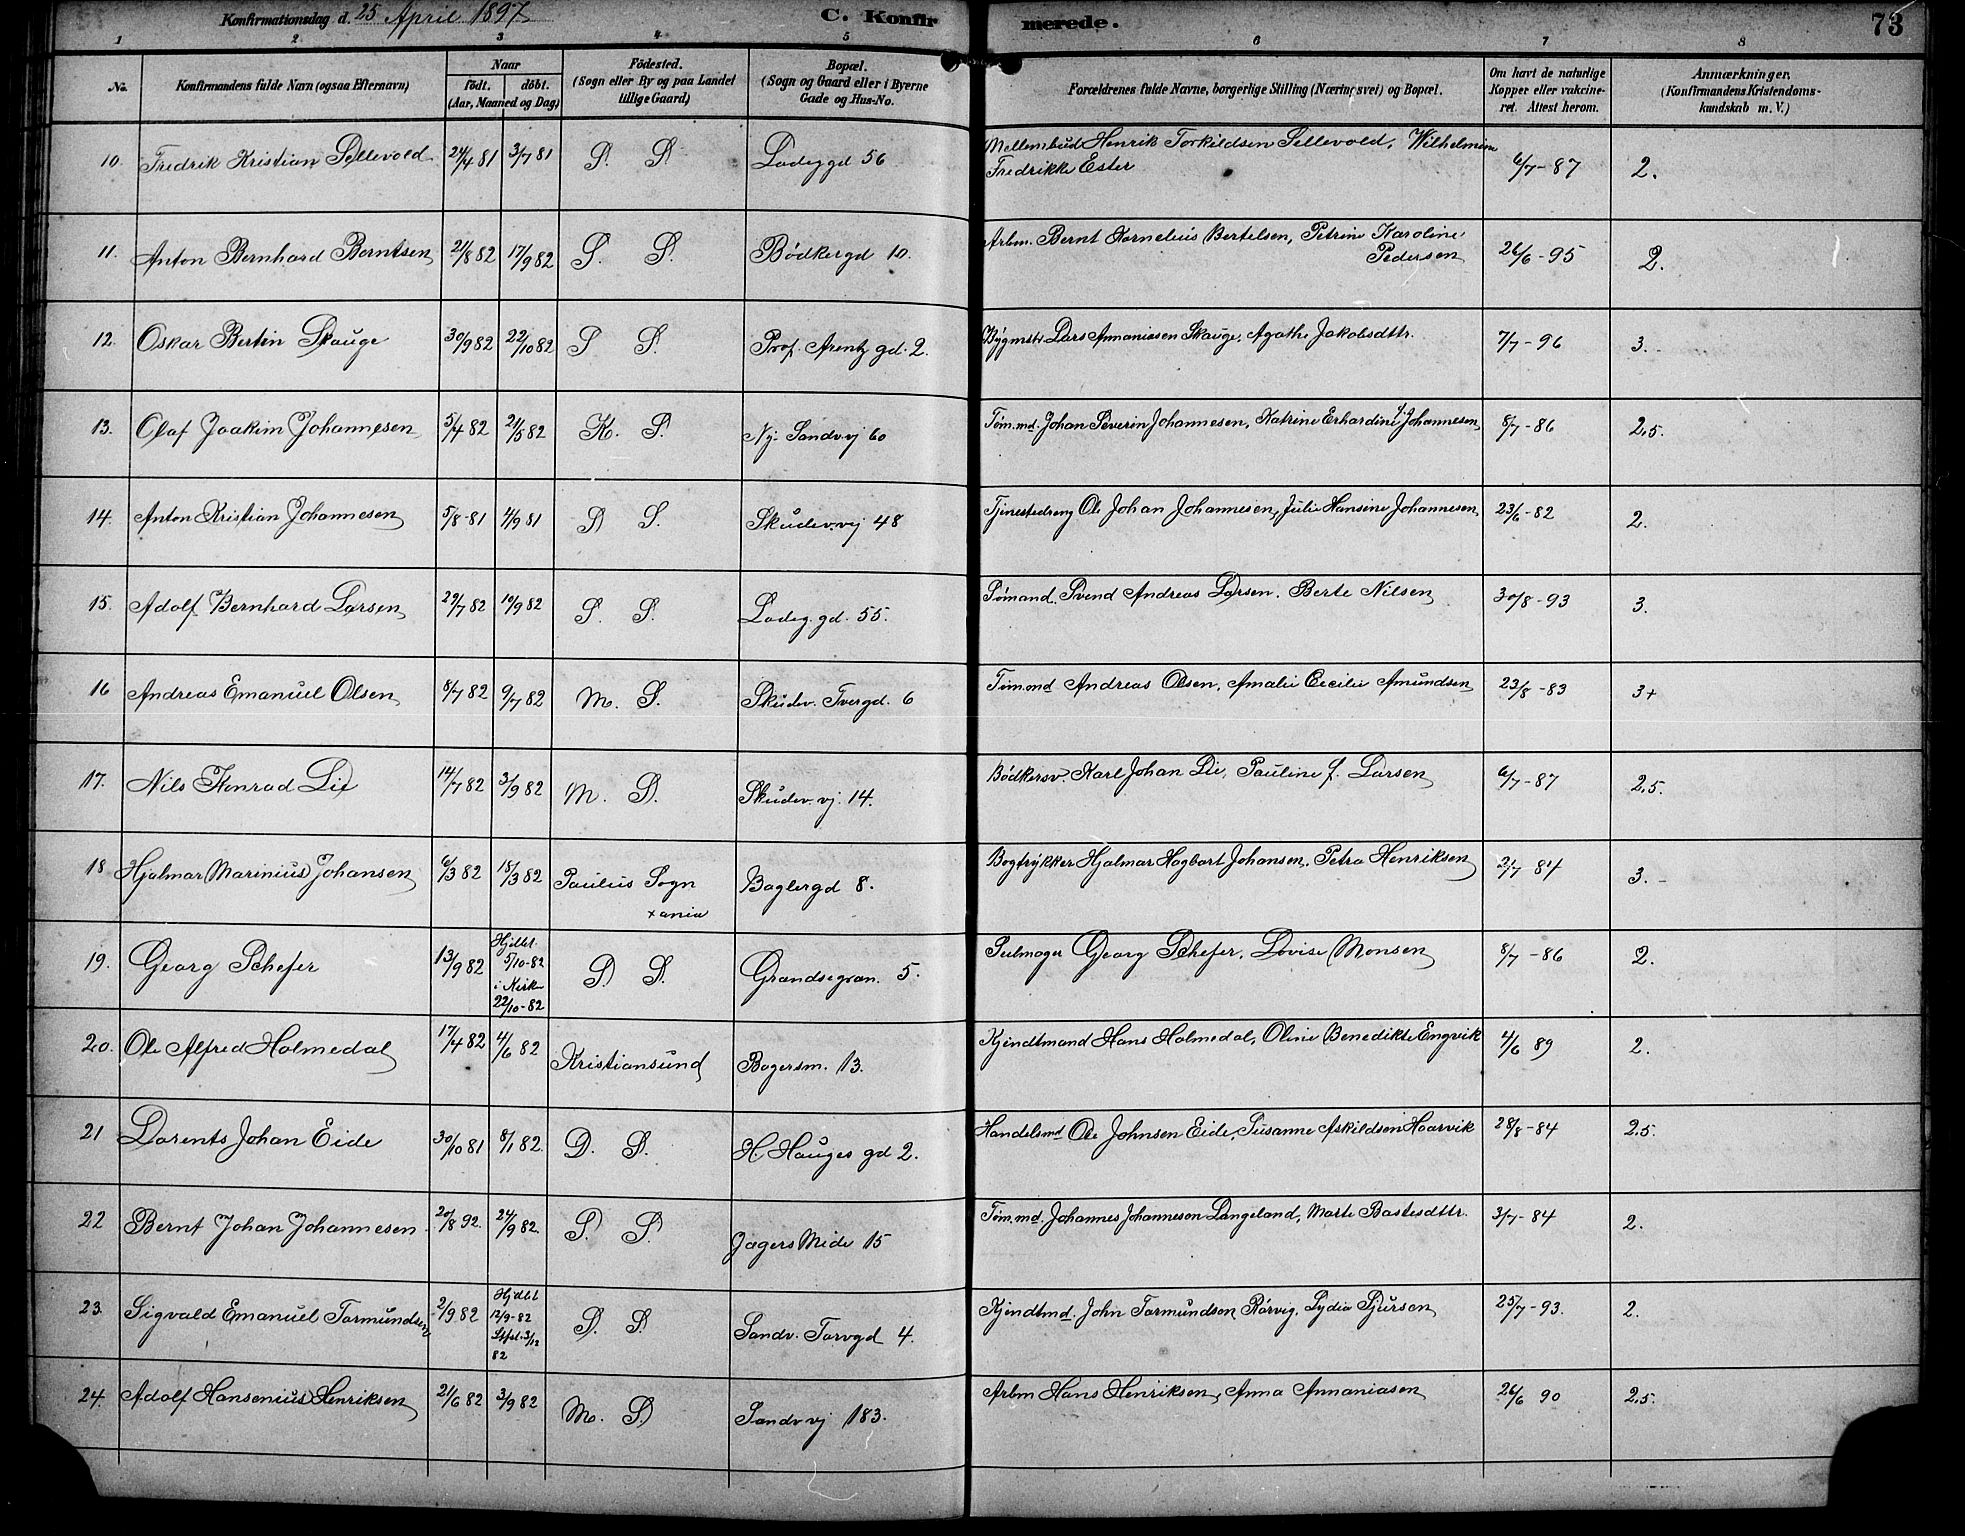 Konfirmationsdag d. 25 April 1897 C. Konfirmerede. 73
1 2 3 4 5 6 7 8
No. Konfirmandens fulde Navn (ogsaa Efternavn) Naar födt. döbt. (Aar, Maaned og Dag) Födested. (Sogn eller By og paa Landet tillige Gaard) Bopæl. (Sogn og Gaard eller i Byerne Gade og Hus-No. Forældrenes fulde Navne, borgerlige Stilling (Næringsvei) og Bopæl. Om havt de naturlige Kopper eller vakcineret. Attest herom. Anmærkninger. (Konfirmandens Kristendomskundskab m. V.)
10. Fredrik Kristian Sellevold 24/4 81 3/7 81 S. S. Ladeggd 56 Mellembud Henrik Torkildsen Sellevold, Wilhelmine
Fredrikke Ester 6/7-87 2.
11. Anton Bernhard Berntsen 21/8 82 17/9 82 S. S. Bödkergd 10. Arbm. Bernt Kornelius Bertelsen, Petrine Karoline
Pedersen 26/6-95 2.
12. Oskar Bertin Skauge 30/9 82 22/10 82 S S. Prof. Arentz gd. 2. Bygmstr Lars Annaniasen Skauge, Agathe Jakobsdttr. 7/7-96 3.-
13. Olaf Joakim Johannesen 5/4 82 21/5 82 K. S. Ny. Sandv.vj 60 Töm.md. Johan Severin Johannesen, Katrine Erhardine f. Johannesen 8/7-86 2,5.
14. Anton Kristian Johannesen 5/8-81 4/9 81 S S. Skudev.vej 48 Tjenestedreng Ole Johan Johannesen, Julie Hansine Johannesen 23/6-82 2.
15. Adolf Bernhard Larsen 29/7 82 10/9 82 S. S. Ladeg. gd. 55. Sömand. Svend Andreas Larsen. Berte Nilsen 30/8-93 3.
16 Andreas Emanuel Olsen 8/7 82 9/7 82 M. S. Skudev. Tvergd. 6 Töm.md Andreas Olsen, Amalie Cecilie Amundsen 23/8-83 3+
17. Nils Konrad Lie 14/7 82 3/9 82 M. S. Skudev. vj. 14. Bödkersv. Karl Johan Lie, Pauline f. Larsen 6/7-87 2,5.
18. Hjalmar Marinius Johansen 6/3 82 18/3 82 Paulus Sogn
x ania Baglergd 8. Bogtrykker Hjalmar Hagbart Johansen, Petra Henriksen 2/7 84 3.-
19. Georg Schefer 13/9 82 Hjdbt.
5/10-82
i Kirke
22/10-82 S. S. Grandsegran. 5. Seilmager Georg Schefer, Lovise Monsen 8/7-86 2.
20. Ole Alfred Holmedal 17/4 82 4/6 82 Kristiansund Bagersm. 13. Kjendtmand Hans Holmedal, Oline Benedikte Engvik 4/6 89 2.
21 Lorents Johan Eide 30/10 81 8/1 82. D. S. H. Hauges gd 2. Handelsmd Ole Johnsen Eide, Susanne Askildsen Haarvik 28/8-84 2,5.
22 Bernt Johan Johannesen 20/8 92. 24/9 82. S. S. Jægers Mide 15 Töm.md. Johannes Johannesen Langeland, Marte Bastesdttr. 3/7-84 2.
23. Sigvald Emanuel Tormundsen 2/9 82 Hjdbt
12/9-82
Stfst. 3/12
82 S. S. Sandv. Torvgd 4. Kjendtmd. John Tormundsen Rörvig, Lydia Sjursen 25/7-93. 2.
24. Adolf Hansenius Henriksen 21/6 82 3/9 82 M. S. Sandv vj 183. Arbm Hans Henriksen, Anna Annaniasen 26/6 90 2,5.